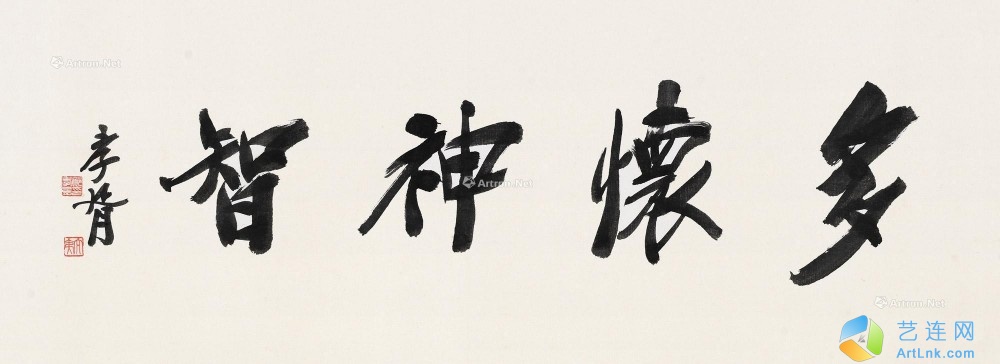 多懷神智
孝胥
Artron.Net
Artron.Net
Artron.Net
艺连网
ArtLnk.com